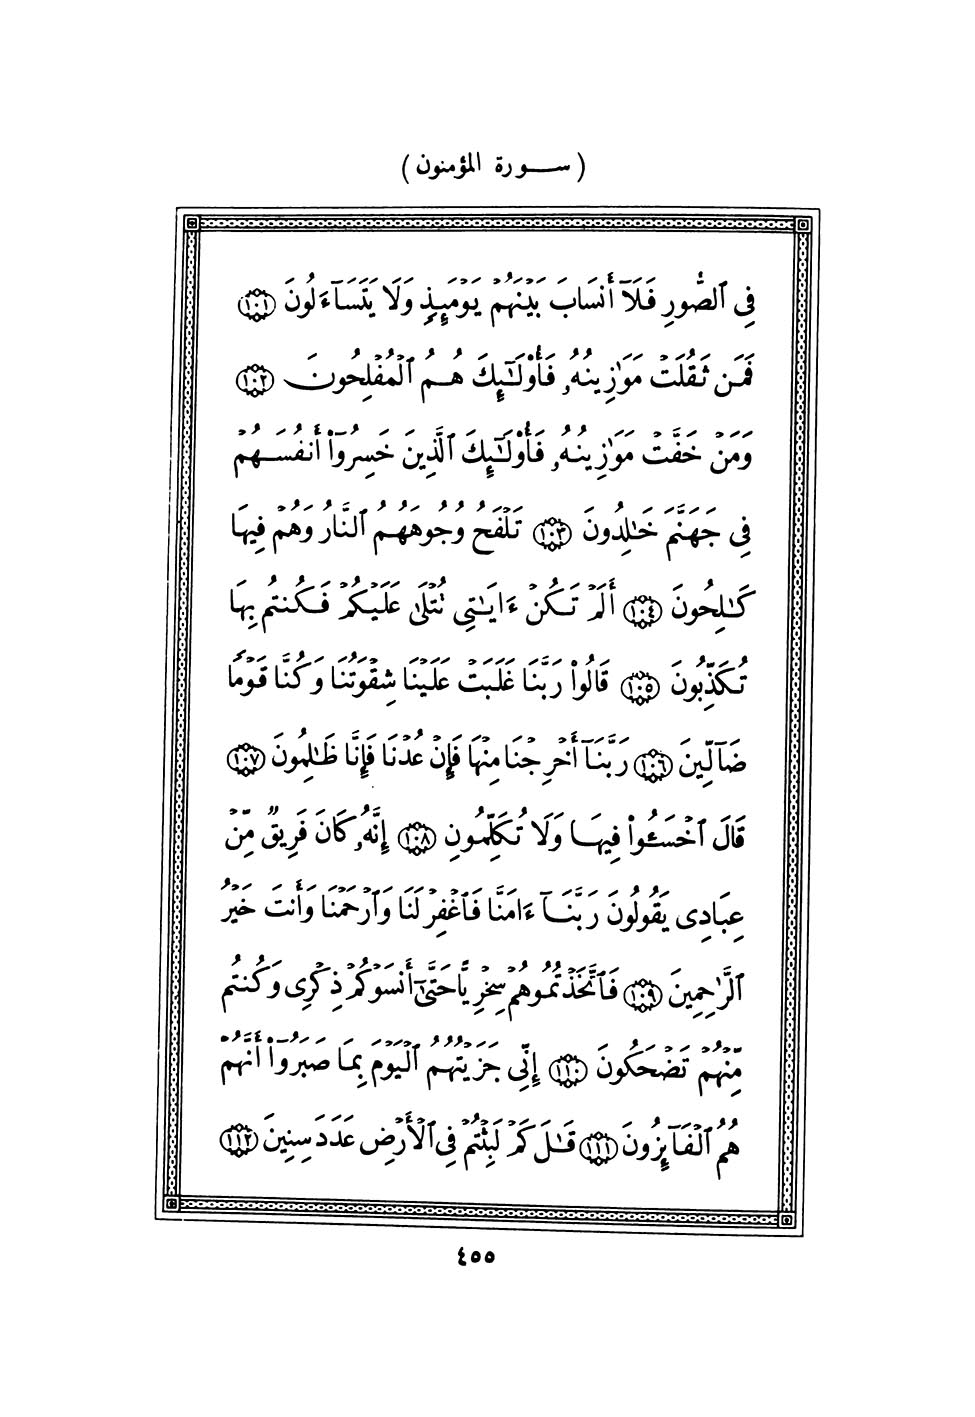 ( ســـورة المؤمنون )
فِي ٱلصُّورِ فَلَآ أَنسَابَ بَيْنَهُمْ يَوْمَئِذٍ وَلَا يَتَسَآءَلُونَ ١٠١
فَمَن ثَقُلَتْ مَوَٰزِينُهُۥ فَأُوْلَـٰٓئِكَ هُمُ ٱلْمُفْلِحُونَ ١٠٢
وَمَنْ خَفَّتْ مَوَٰزِينُهُۥ فَأُوْلَـٰٓئِكَ ٱلَّذِينَ خَسِرُوٓاْ أَنفُسَهُمْ
فِي جَهَنَّمَ خَـٰلِدُونَ ١٠٣ تَلْفَحُ وُجُوهَهُمُ ٱلنَّارُ وَهُمْ فِيهَا
كَـٰلِحُونَ ١٠٤ أَلَمْ تَكُنْ ءَايَـٰتِي تُتْلَىٰ عَلَيْكُمْ فَكُنتُم بِهَا
تُكَذِّبُونَ ١٠٥ قَالُواْ رَبَّنَا غَلَبَتْ عَلَيْنَا شِقْوَتُنَا وَكُنَّا قَوْمًا
ضَآلِّينَ ١٠٦ رَبَّنَآ أَخْرِجْنَا مِنْهَا فَإِنْ عُدْنَا فَإِنَّا ظَـٰلِمُونَ ١٠٧
قَالَ ٱخْسَـُٔواْ فِيهَا وَلَا تُكَلِّمُونِ ١٠٨ إِنَّهُۥ كَانَ فَرِيقٌ مِّنْ
عِبَادِى يَقُولُونَ رَبَّنَآ ءَامَنَّا فَٱغْفِرْ لَنَا وَٱرْحَمْنَا وَأَنتَ خَيْرُ
ٱلرَّٰحِمِينَ ١٠٩ فَٱتَّخَذْتُمُوهُمْ سِخْرِيًّا حَتَّىٰٓ أَنسَوْكُمْ ذِكْرِى وَكُنتُم
مِّنْهُمْ تَضْحَكُونَ ١١٠ إِنِّي جَزَيْتُهُمُ ٱلْيَوْمَ بِمَا صَبَرُوٓاْ أَنَّهُمْ
هُمُ ٱلْفَآئِزُونَ ١١١ قَـٰلَ كَمْ لَبِثْتُمْ فِي ٱلْأَرْضِ عَدَدَ سِنِينَ ١١٢
٤٥٥